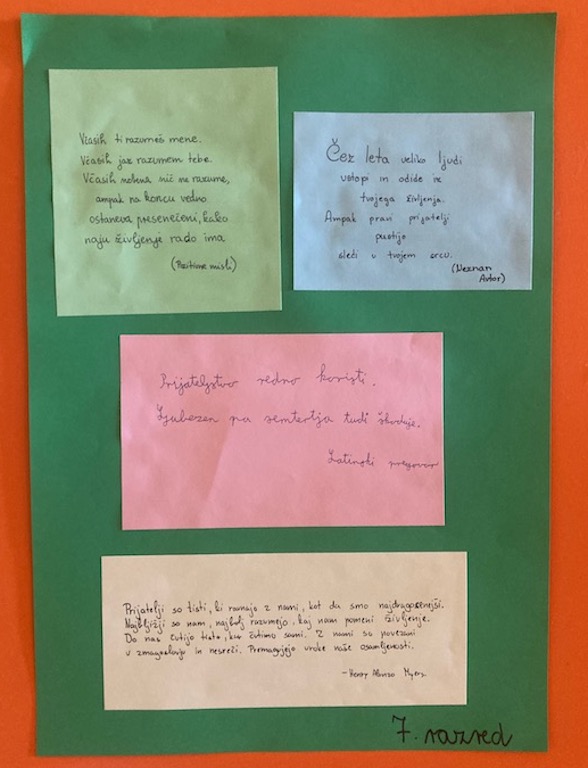 Včasih ti razumeš mene.
Včasih jaz razumem tebe.
Včasih nobena nič ne razume,
ampak na koncu vedno
ostaneva presenečeni, kako
naju življenje rado ima
(Pozitivne misli)
Čez leta veliko ljudi
vstopi in odide iz
tvojega življenja.
Ampak pravi prijatelji
pustijo
sledi v tvojem srcu.
(Neznan
Avtor)
Prijateljstvo vedno koristi.
Ljubezen pa semtertja tudi škoduje.
Latinski pregovor
Prijatelji so tisti, ki ravnajo z nami, kot da smo najdragocenejši.
Najbližji so nam, najbolj razumejo, kaj nam pomeni življenje.
Do nas čutijo tisto, kar čutimo sami. Z nami so povezani
v zmagoslavju in nesreči. Premagujejo uroke naše osamljenosti.
- Henry Alonso Myers
7. razred